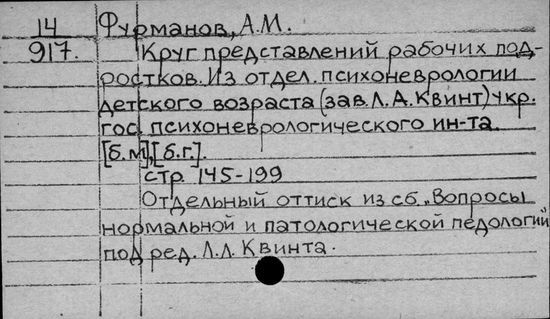 14 Фурманов, А.М.
917. Круг представлений рабочих под-
ростков. Из отдел. психоневрологии
детского возраста (зав. Л.А. Квинт) Укр.
гос. психоневрологического ин-та.
[б.м], [б.г.].
стр 145-199
Отдельный оттиск из сб. „Вопросы
нормальной и патологической педологии"
под ред. Л.Л. Квинта.